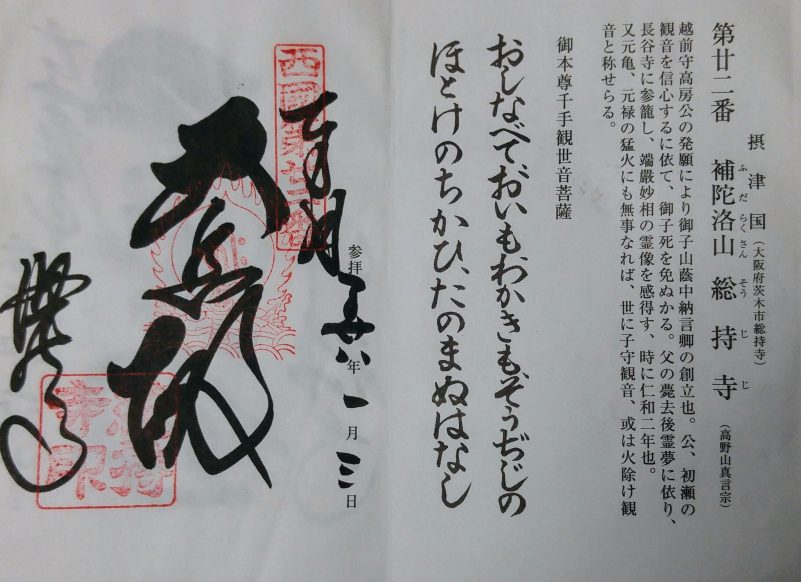 摂津国(大阪府茨木市総持寺)
第廿二番 補陀洛山 総持寺(高野山真言宗)
ふだらくさん そうじじ
越前守高房公の発願により御子山蔭中納言卿の創立也。公、初瀬の
観音を信心するに依て、御子死を免ぬかる。父の薨去後霊夢に依り、
長谷寺に参籠し、端厳妙相の霊像を感得す、時に仁和二年也。
又元亀、元禄の猛火にも無事なれば、世に子守観音、或は火除け観
音と称せらる。
御本尊千手観世音菩薩
おしなべておいもわかきもそうぢじの
ほとけのちかひ、たのまぬはなし
参拝 年一月三日
奉拝
西國第廿二番
大悲殿
総持寺
総持寺印